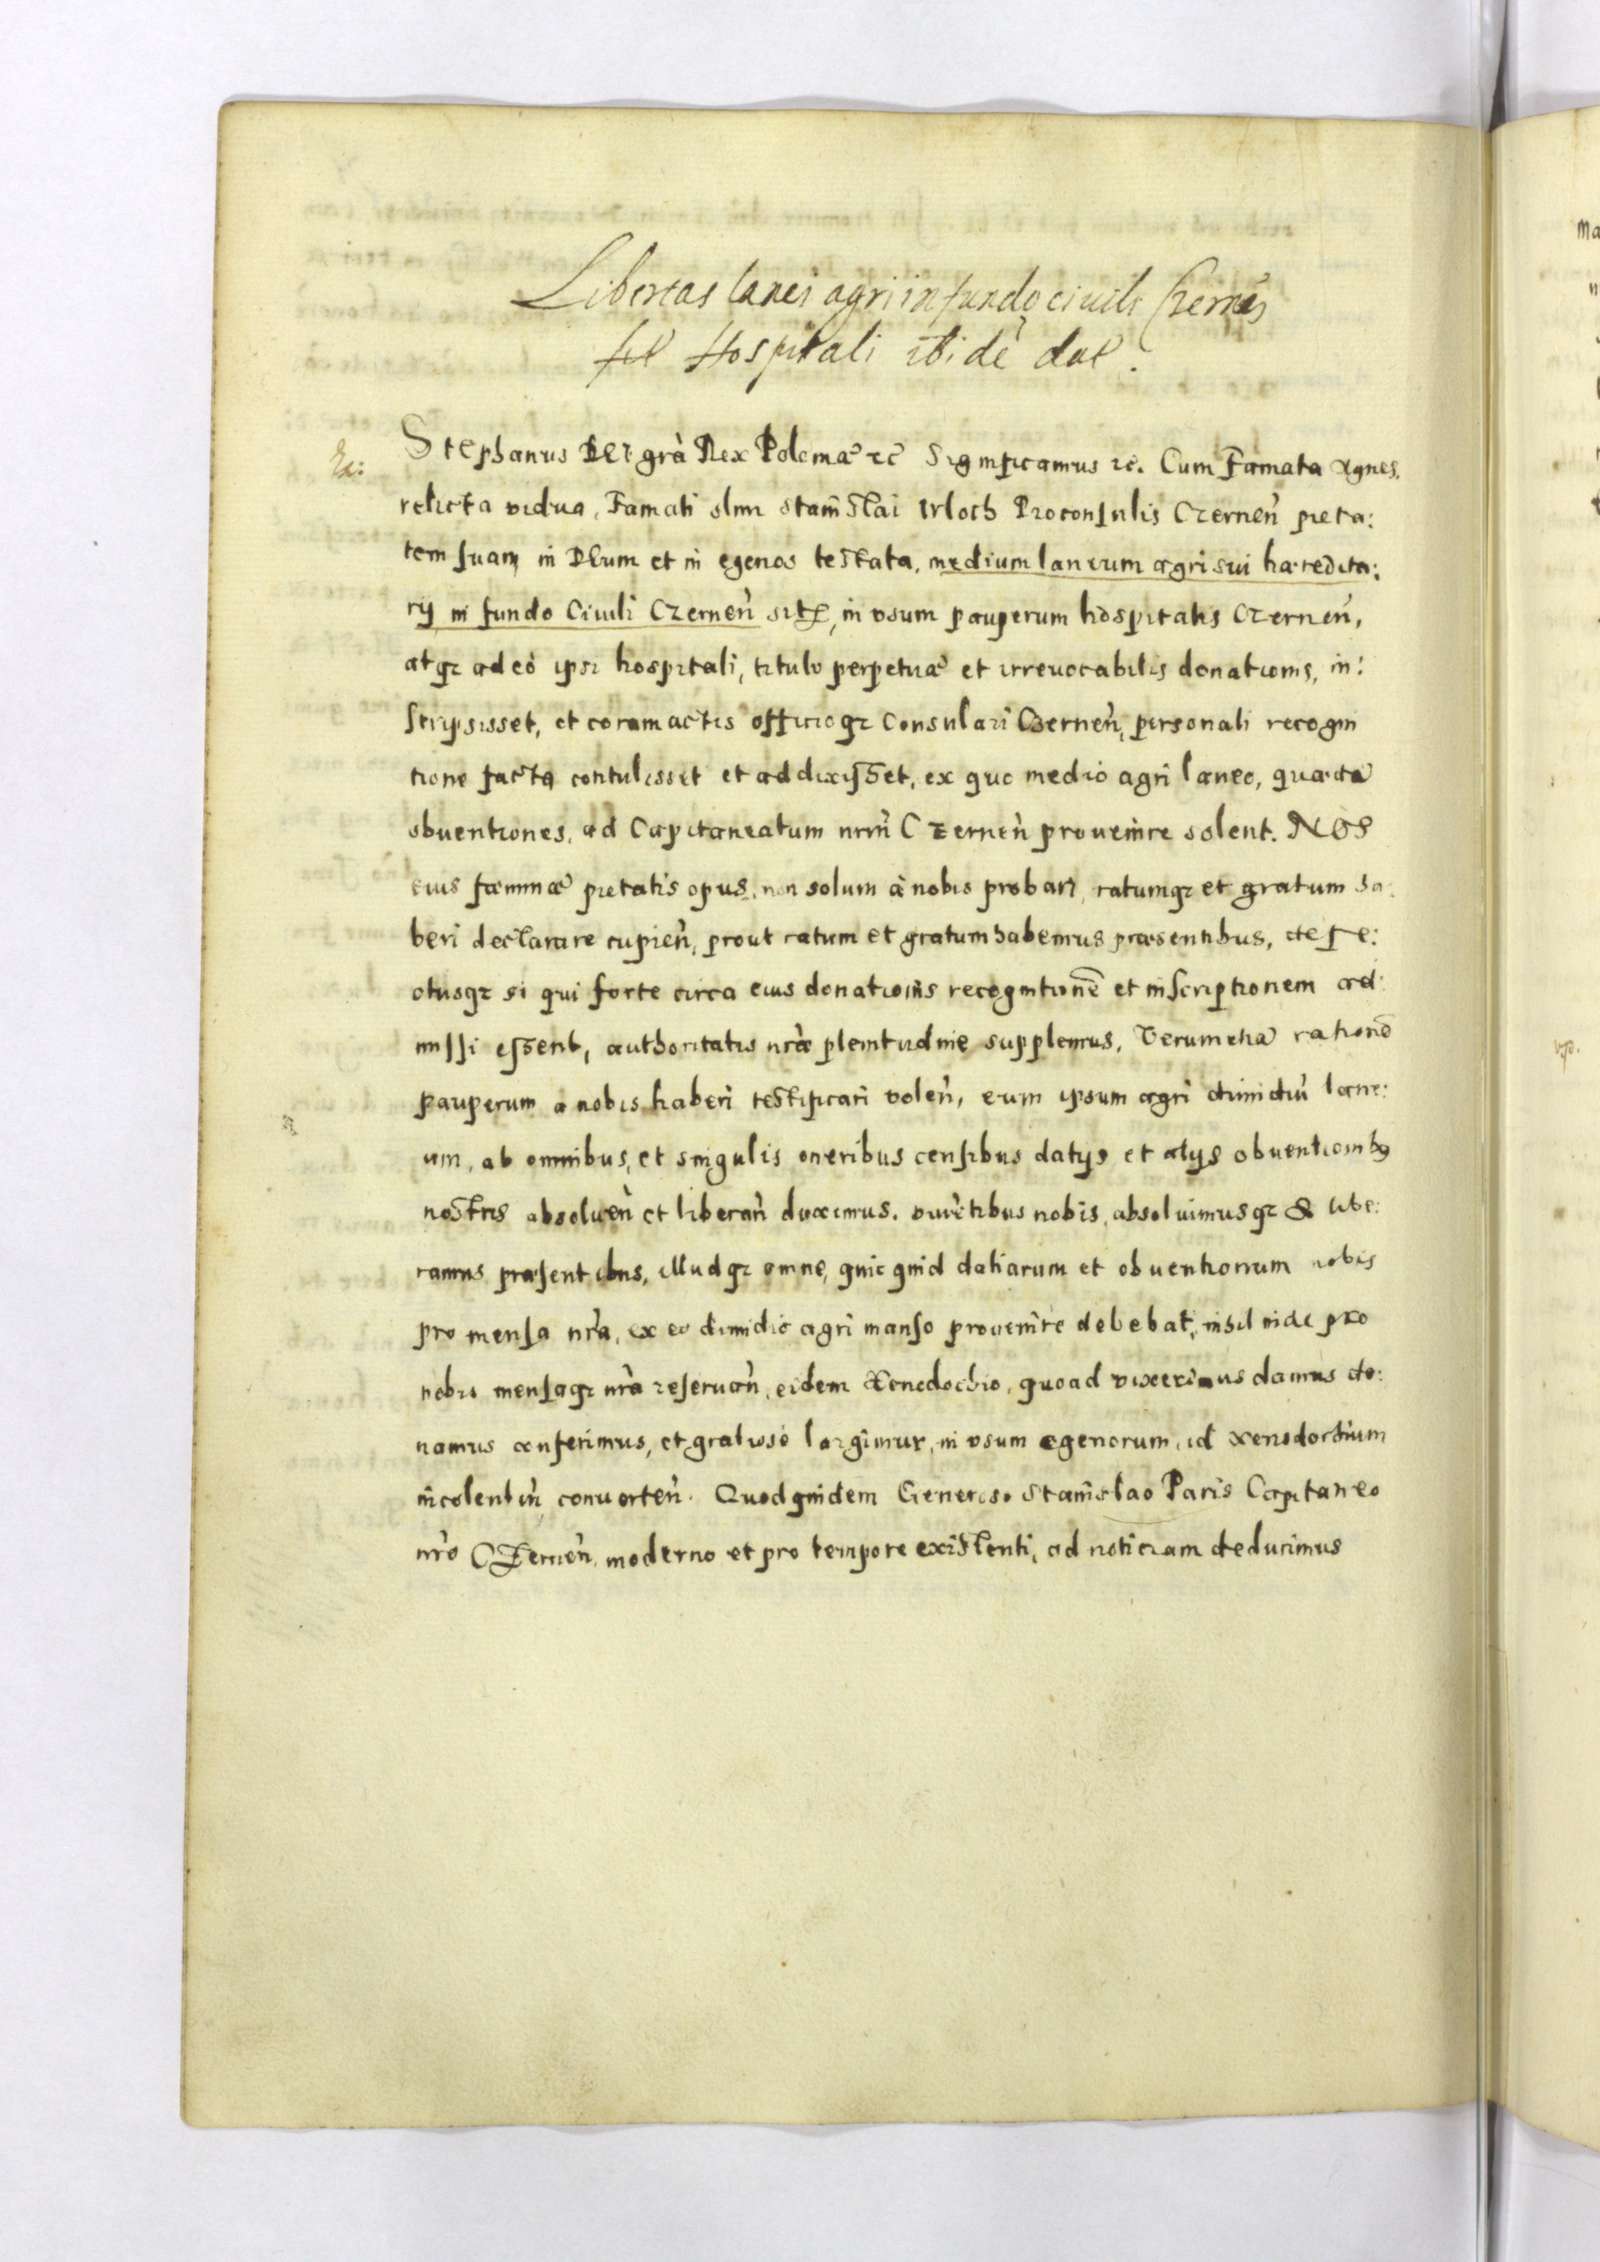 Libertas lanei agri in fundo ciuili Czernen̄
Hospitali ibidē dat.
Stephanus DEI grà Rex Poloniæ ec̄ Significamus ec. Cum Famata Agnes,
relicta vidua, Famati olim Staniſlai Proconſulis Czernen̄ pieta:
tem ſuam in DEum et in egenos teſtata, medium laneum agri sui hæredita:
rij in fundo Ciuili Czernen̄ in vsum pauperum hospitalis Czernen̄,
atqꝫ adeò ipsi hospitali, titulo perpetuæ et irreuocabilis donationis, in:
ſcripsisset, et coram actis officioqꝫ Consulari Czernen̄, personali recogni
tione facta contulisset et addixiſset, ex quo medio agri laneo, quædā
obuentiones, ad Capitaneatum nrm̄ Czernen̄ prouenire solent. NOS
eius fœminæ pietatis opus, non solum à nobis probari, ratumqꝫ et gratum ha:
beri declarare cupien̄, prout ratum et gratum habemus præsentibus, defe:
ctusqꝫ si qui forte circa eius donationis recognitionē et inſcriptionem ad:
miſſi eſsent, authoritatis nræ̀ plenitudine supplemus, Verumetiā rationē
pauperum a nobis haberi teſtificari volen̄, eum ipsum agri dimidiū lane:
um, ab omnibus, et singulis oneribus cenſibus datijs et alijs obuentionibꝰ
noſtris absoluen̄ et liberan̄ duximus. viuētibus nobis, absoluimusqꝫ & libe:
ramus præſentibus, illudqꝫ omne, quicquid datiarum et obuentionum nobis
pro menſa nrà, ex eo dimidio agri manſo prouenire debebat, nihil inde pro
nobis menſaqꝫ nrà reſeruan̄, eidem Xenodochio, quoad vixerimus damus do:
namus conferimus, et gratiosè largimur, in vsum egenorum, id xenodochium
incolentiū conuerten̄. Quod quidem Generoso Stanislao Paris Capitaneo
nrò Czernen̄, moderno et pro tempore exiſtenti, ad noticiam deducimus